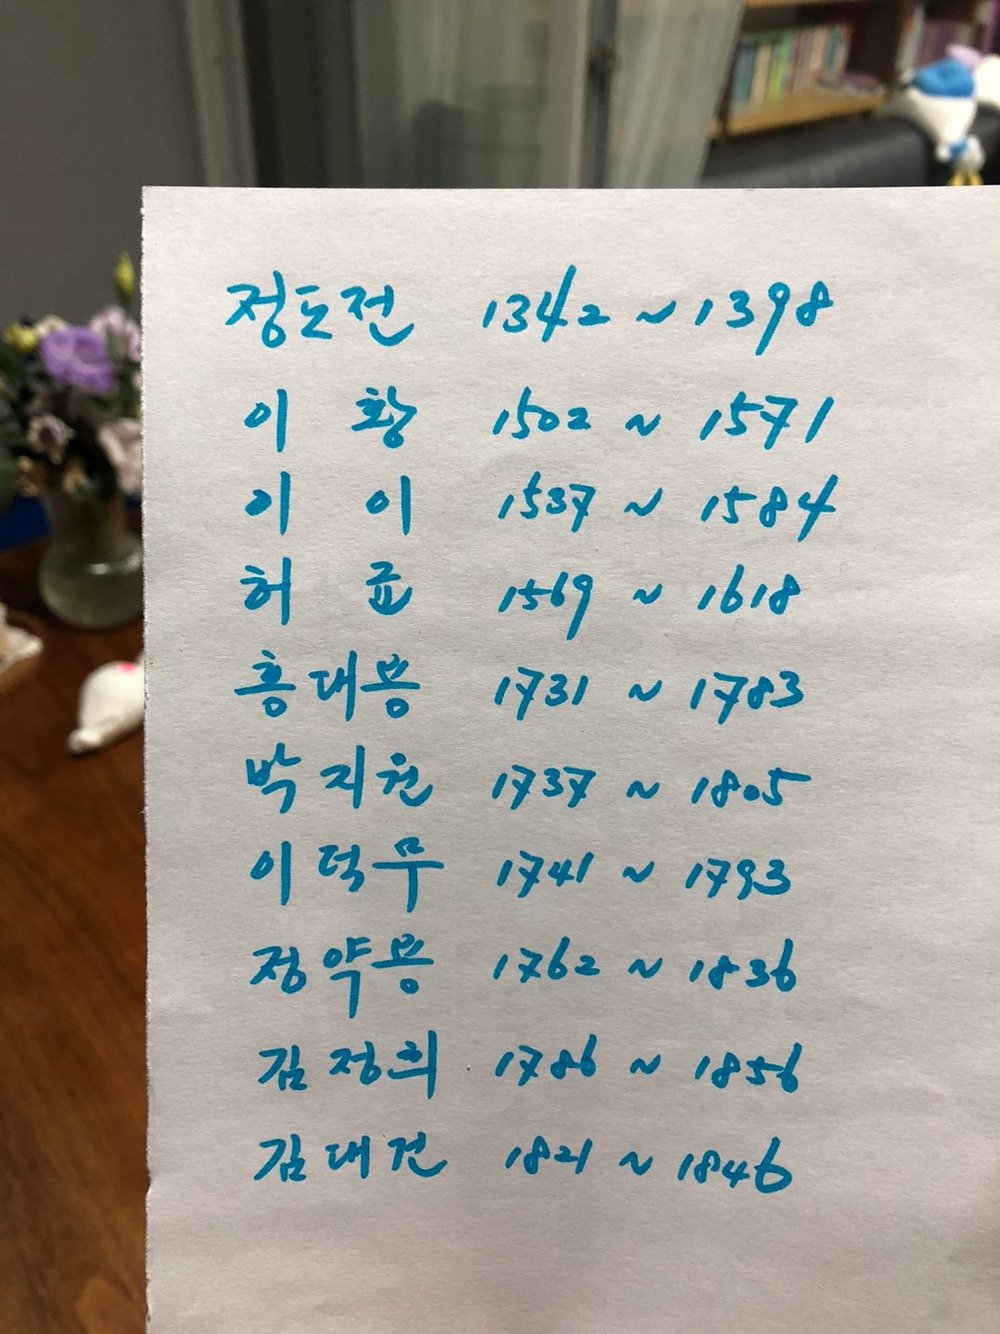 정도전 1342 ~ 1398
이 황 1502 ~ 1571
이 이 1537 ~ 1584
허 균 1569 ~ 1618
홍대용 1731 ~ 1783
박지원 1737 ~ 1805
이덕무 1741 ~ 1793
정약용 1762 ~ 1836
김정희 1786 ~ 1856
김대건 1821 ~ 1846